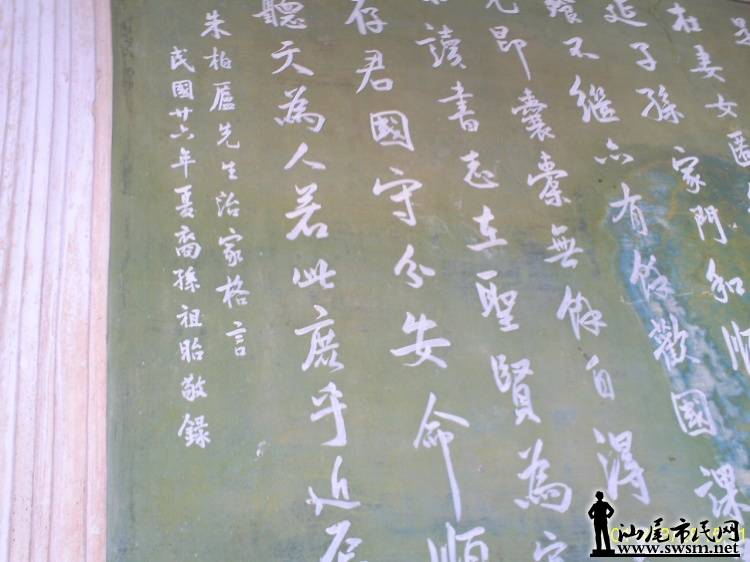 在妻女匿
延子孫家門和順
飧不繼亦有餘歡國課
即囊橐無餘自得
讀書志在聖賢為
存君國守分安命順
聽天為人若此庶乎近焉
朱柏廬先生治家格言
民國廿六年夏裔孫祖貽敬錄
汕尾市民网
www.swsm.net